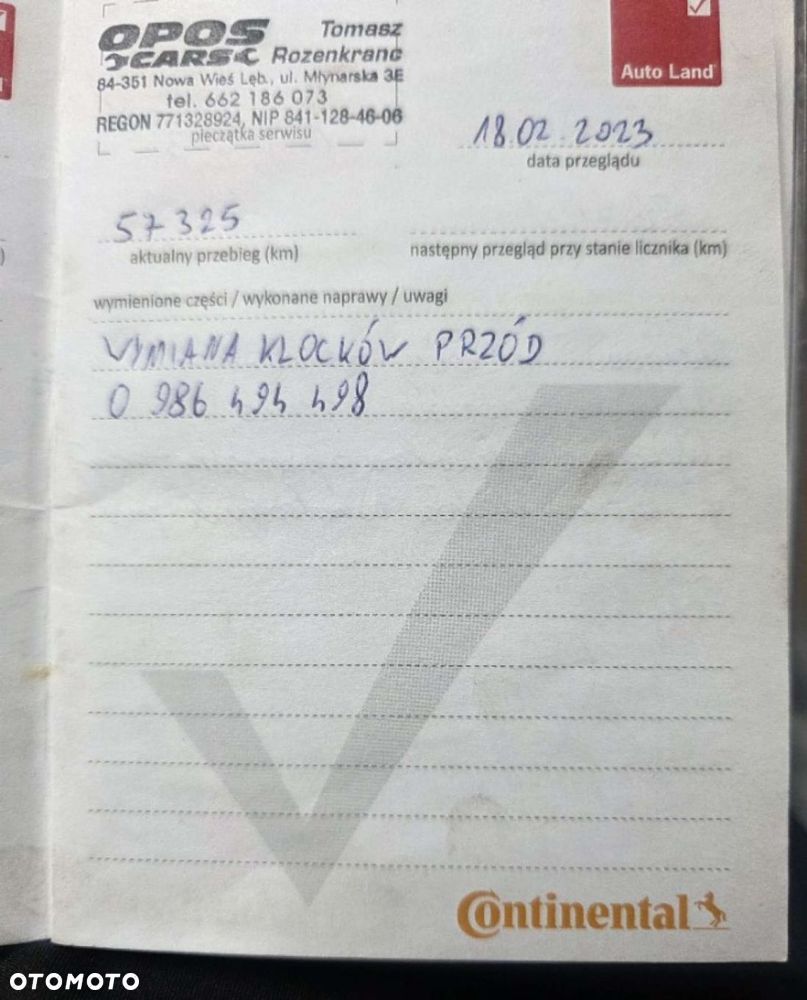 OPOS
CARS
Tomasz
Rozenkranc
84-351 Nowa Wieś Lęb., ul. Młynarska 3E
tel. 662 186 073
REGON 771328924, NIP 841-128-46-06
pieczątka serwisu
Auto Land
18.02.2023
data przeglądu
57325
aktualny przebieg (km)
następny przegląd przy stanie licznika (km)
wymienione części / wykonane naprawy / uwagi
WYMIANA KLOCKÓW PRZÓD
0 986 494 498
Continental
OTOMOTO